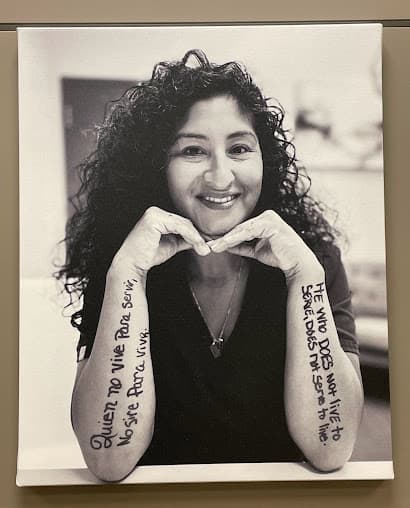 Quien no vive para servir,
No sirve para vivir.
HE WHO DOES NOT live to
Serve, DOES Not serve to live.